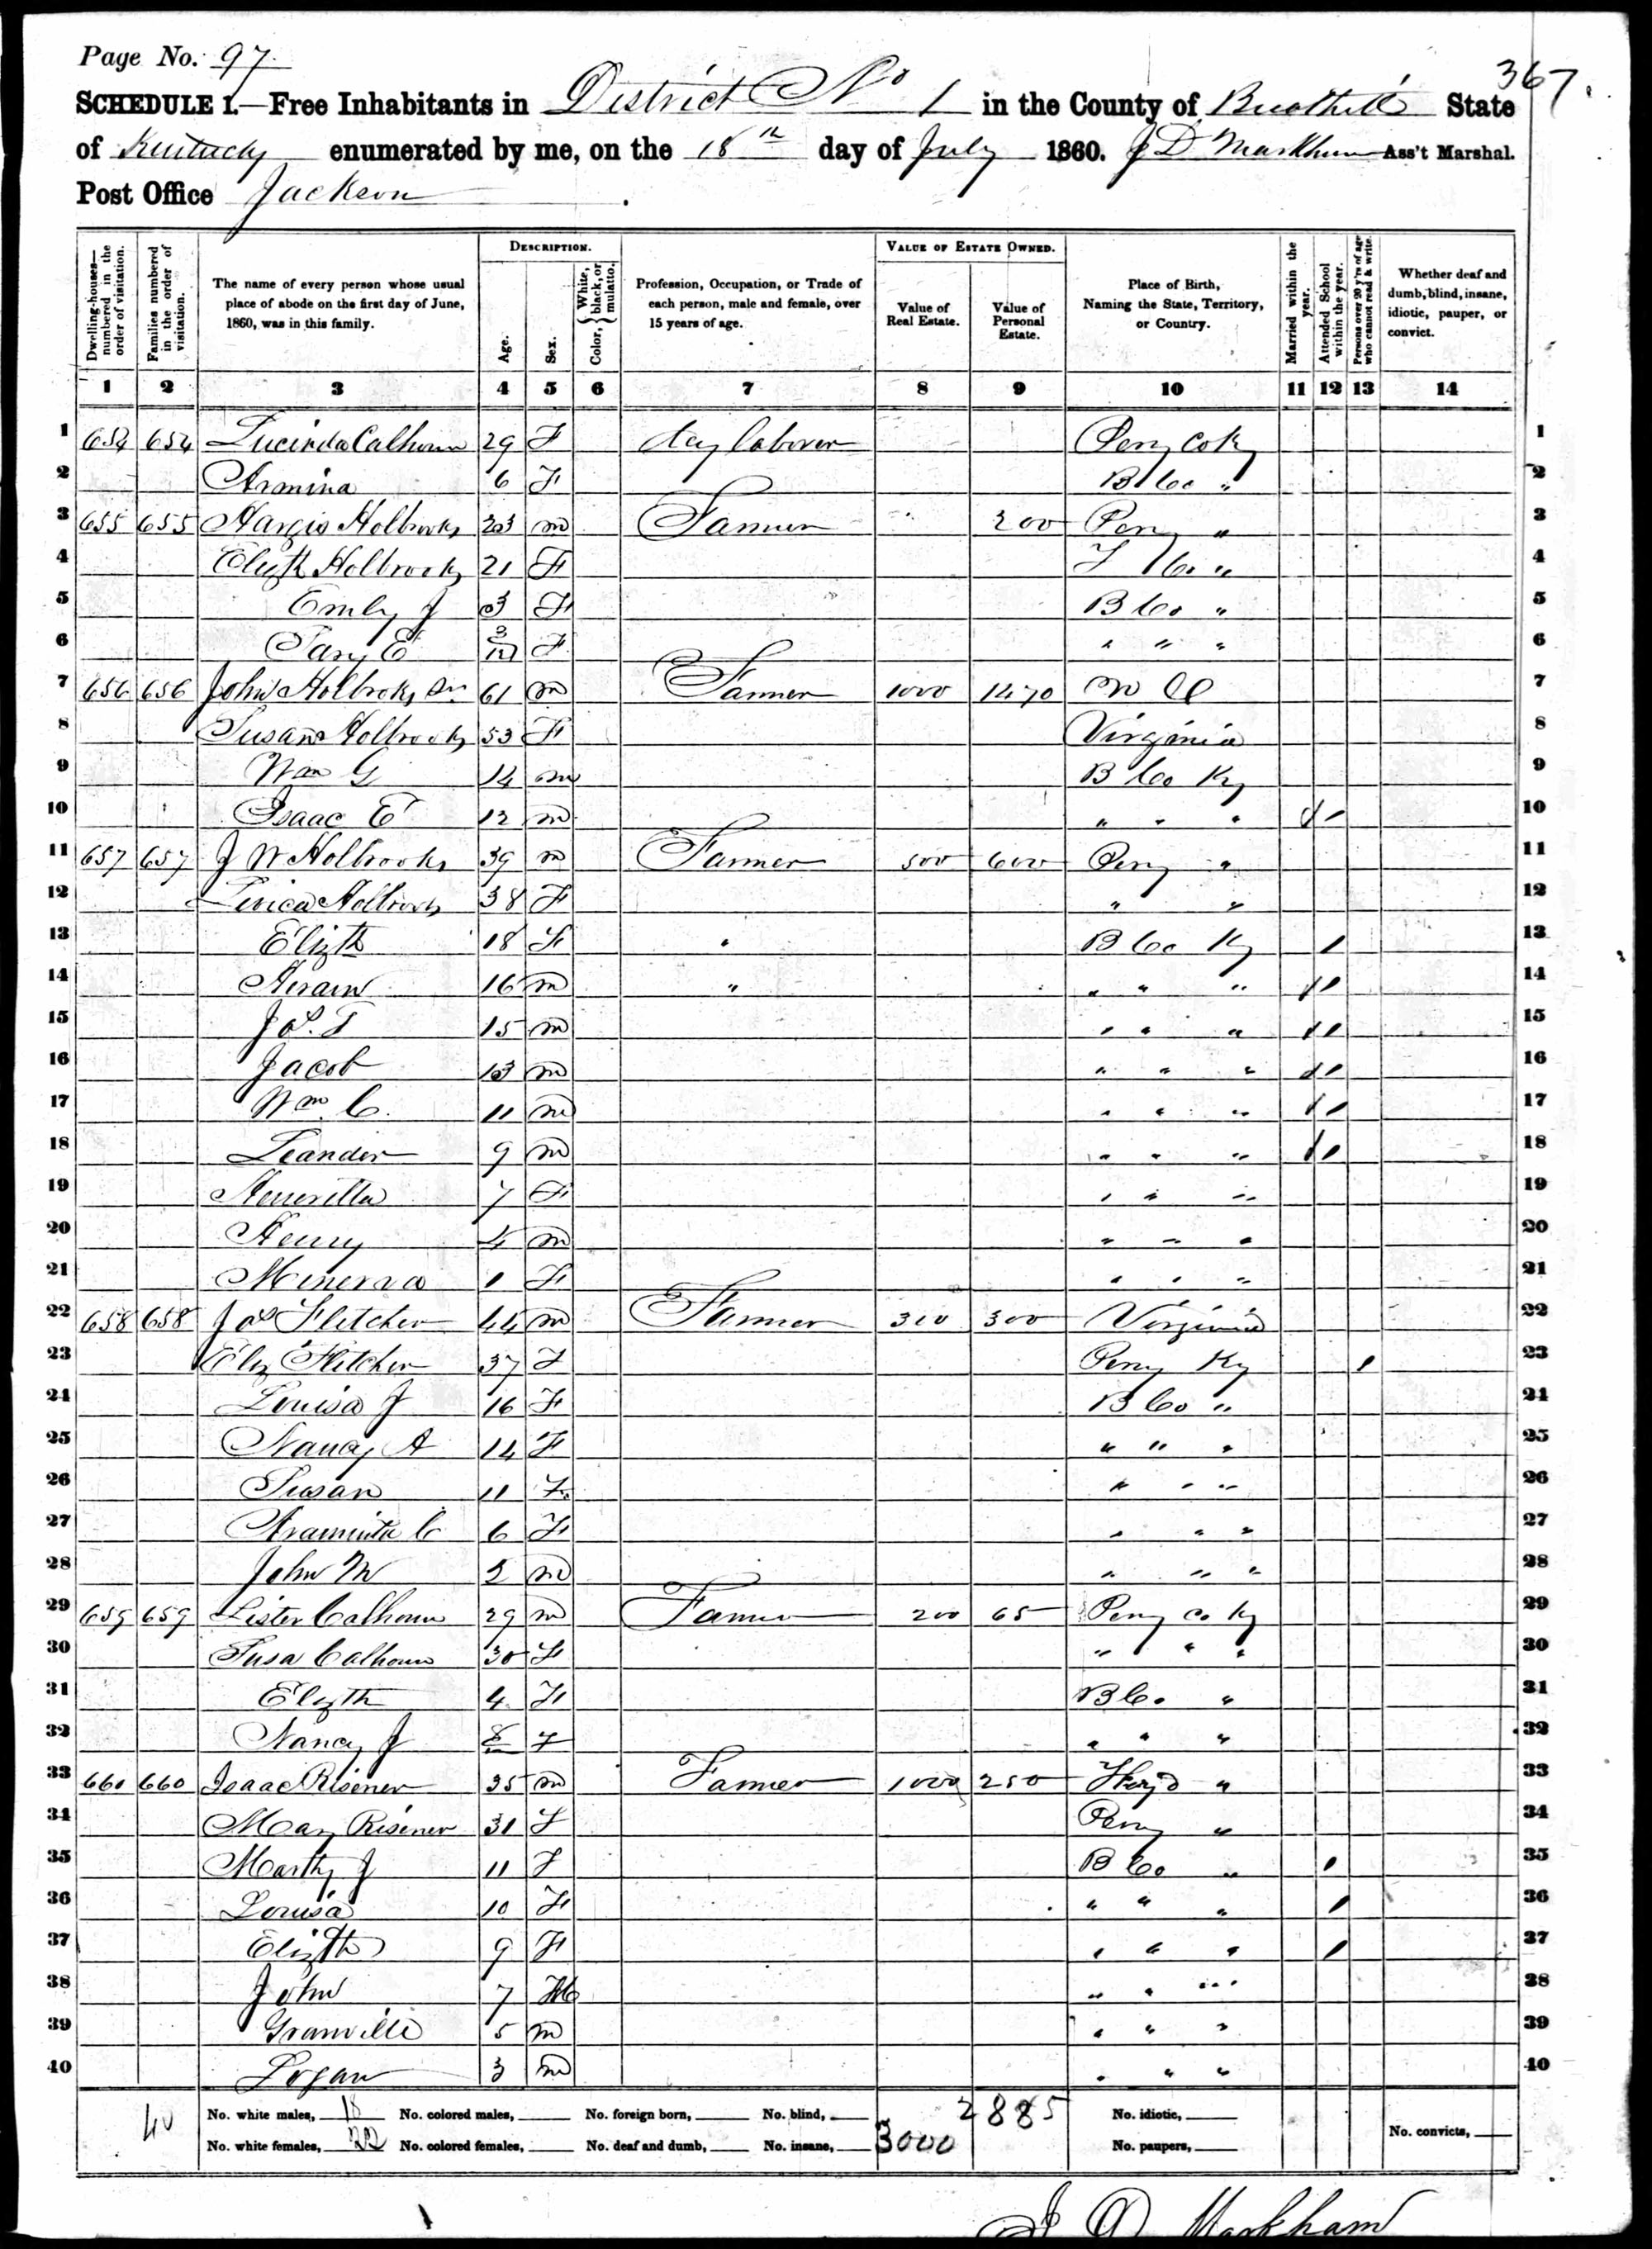 Page No. 97
367.
SCHEDULE 1.—Free Inhabitants in District No 1 in the County of Breathitt State
of Kentucky enumerated by me, on the 18th day of July 1860. J D Markham Ass't Marshal.
Post Office Jackson
Dwelling-houses—numbered in the order of visitation.
Families numbered in the order of visitation.
The name of every person whose usual place of abode on the first day of June, 1860, was in this family.
DESCRIPTION.
Age.
Sex.
Color, { White, black, or mulatto.
Profession, Occupation, or Trade of each person, male and female, over 15 years of age.
VALUE OF ESTATE OWNED.
Value of Real Estate.
Value of Personal Estate.
Place of Birth, Naming the State, Territory, or Country.
Married within the year.
Attended School within the year.
Persons over 20 y'rs of age who cannot read & write.
Whether deaf and dumb, blind, insane, idiotic, pauper, or convict.
1 2 3 4 5 6 7 8 9 10 11 12 13 14
1 654 654 Lucinda Calhoun 29 F day laborer Perry Co Ky 1
2 Armina 6 F B Co " 2
3 655 655 Hargis Holbrooks 23 m Farmer 200 Perry " 3
4 Elizth Holbrooks 21 F F Co " 4
5 Emly J 3 F B Co " 5
6 E 3/12 F " " " 6
7 656 656 John Holbrooks Sr 61 m Farmer 1000 1470 7
8 Susan Holbrooks 53 F Virginia 8
9 Wm G 14 m B Co Ky 9
10 Isaac E 12 m " " " / 10
11 657 657 J W Holbrooks 39 m Farmer 500 600 Perry " 11
12 Holbrooks 38 F " " 12
13 Elizth 18 F " B Co Ky / 13
14 Hiram 16 m " " " " / 14
15 Jas. T 15 m " " " / 15
16 Jacob 13 m " " " / 16
17 Wm C. 11 m " " " / 17
18 Leander 9 m " " " / 18
19 Henrietta 7 F " " " 19
20 Henry 4 m " " " 20
21 Minerva 1 F " " " 21
22 658 658 Jas Fletcher 44 m Farmer 300 300 Virginia 22
23 Eliz Fletcher 37 F Perry Ky / 23
24 Louisa J 16 F B Co " 24
25 Nancy A 14 F " " " 25
26 Susan 11 F " " " 26
27 Araminta C 6 F " " " 27
28 John M 2 m " " " 28
29 659 659 Lister Calhoun 29 m Farmer 200 65 Perry Co Ky 29
30 Susa Calhoun 30 F " " " 30
31 Elizth 4 F B Co " 31
32 Nancy J F " " " 32
33 660 660 Isaac Risener 35 m Farmer 1000 250 Floyd " 33
34 Mary Risener 31 F Perry " 34
35 Marthy J 11 F B Co " / 35
36 Louisa 10 F " " " / 36
37 Elizth 9 F " " " / 37
38 John 7 M " " " 38
39 Granville 5 m " " " 39
40 Logan 3 m " " " 40
40
No. white males, 18 No. colored males, No. foreign born, No. blind, 2885 No. idiotic,
No. white females, 22 No. colored females, No. deaf and dumb, No. insane, 3000 No. paupers, No. convicts,
J D Markham